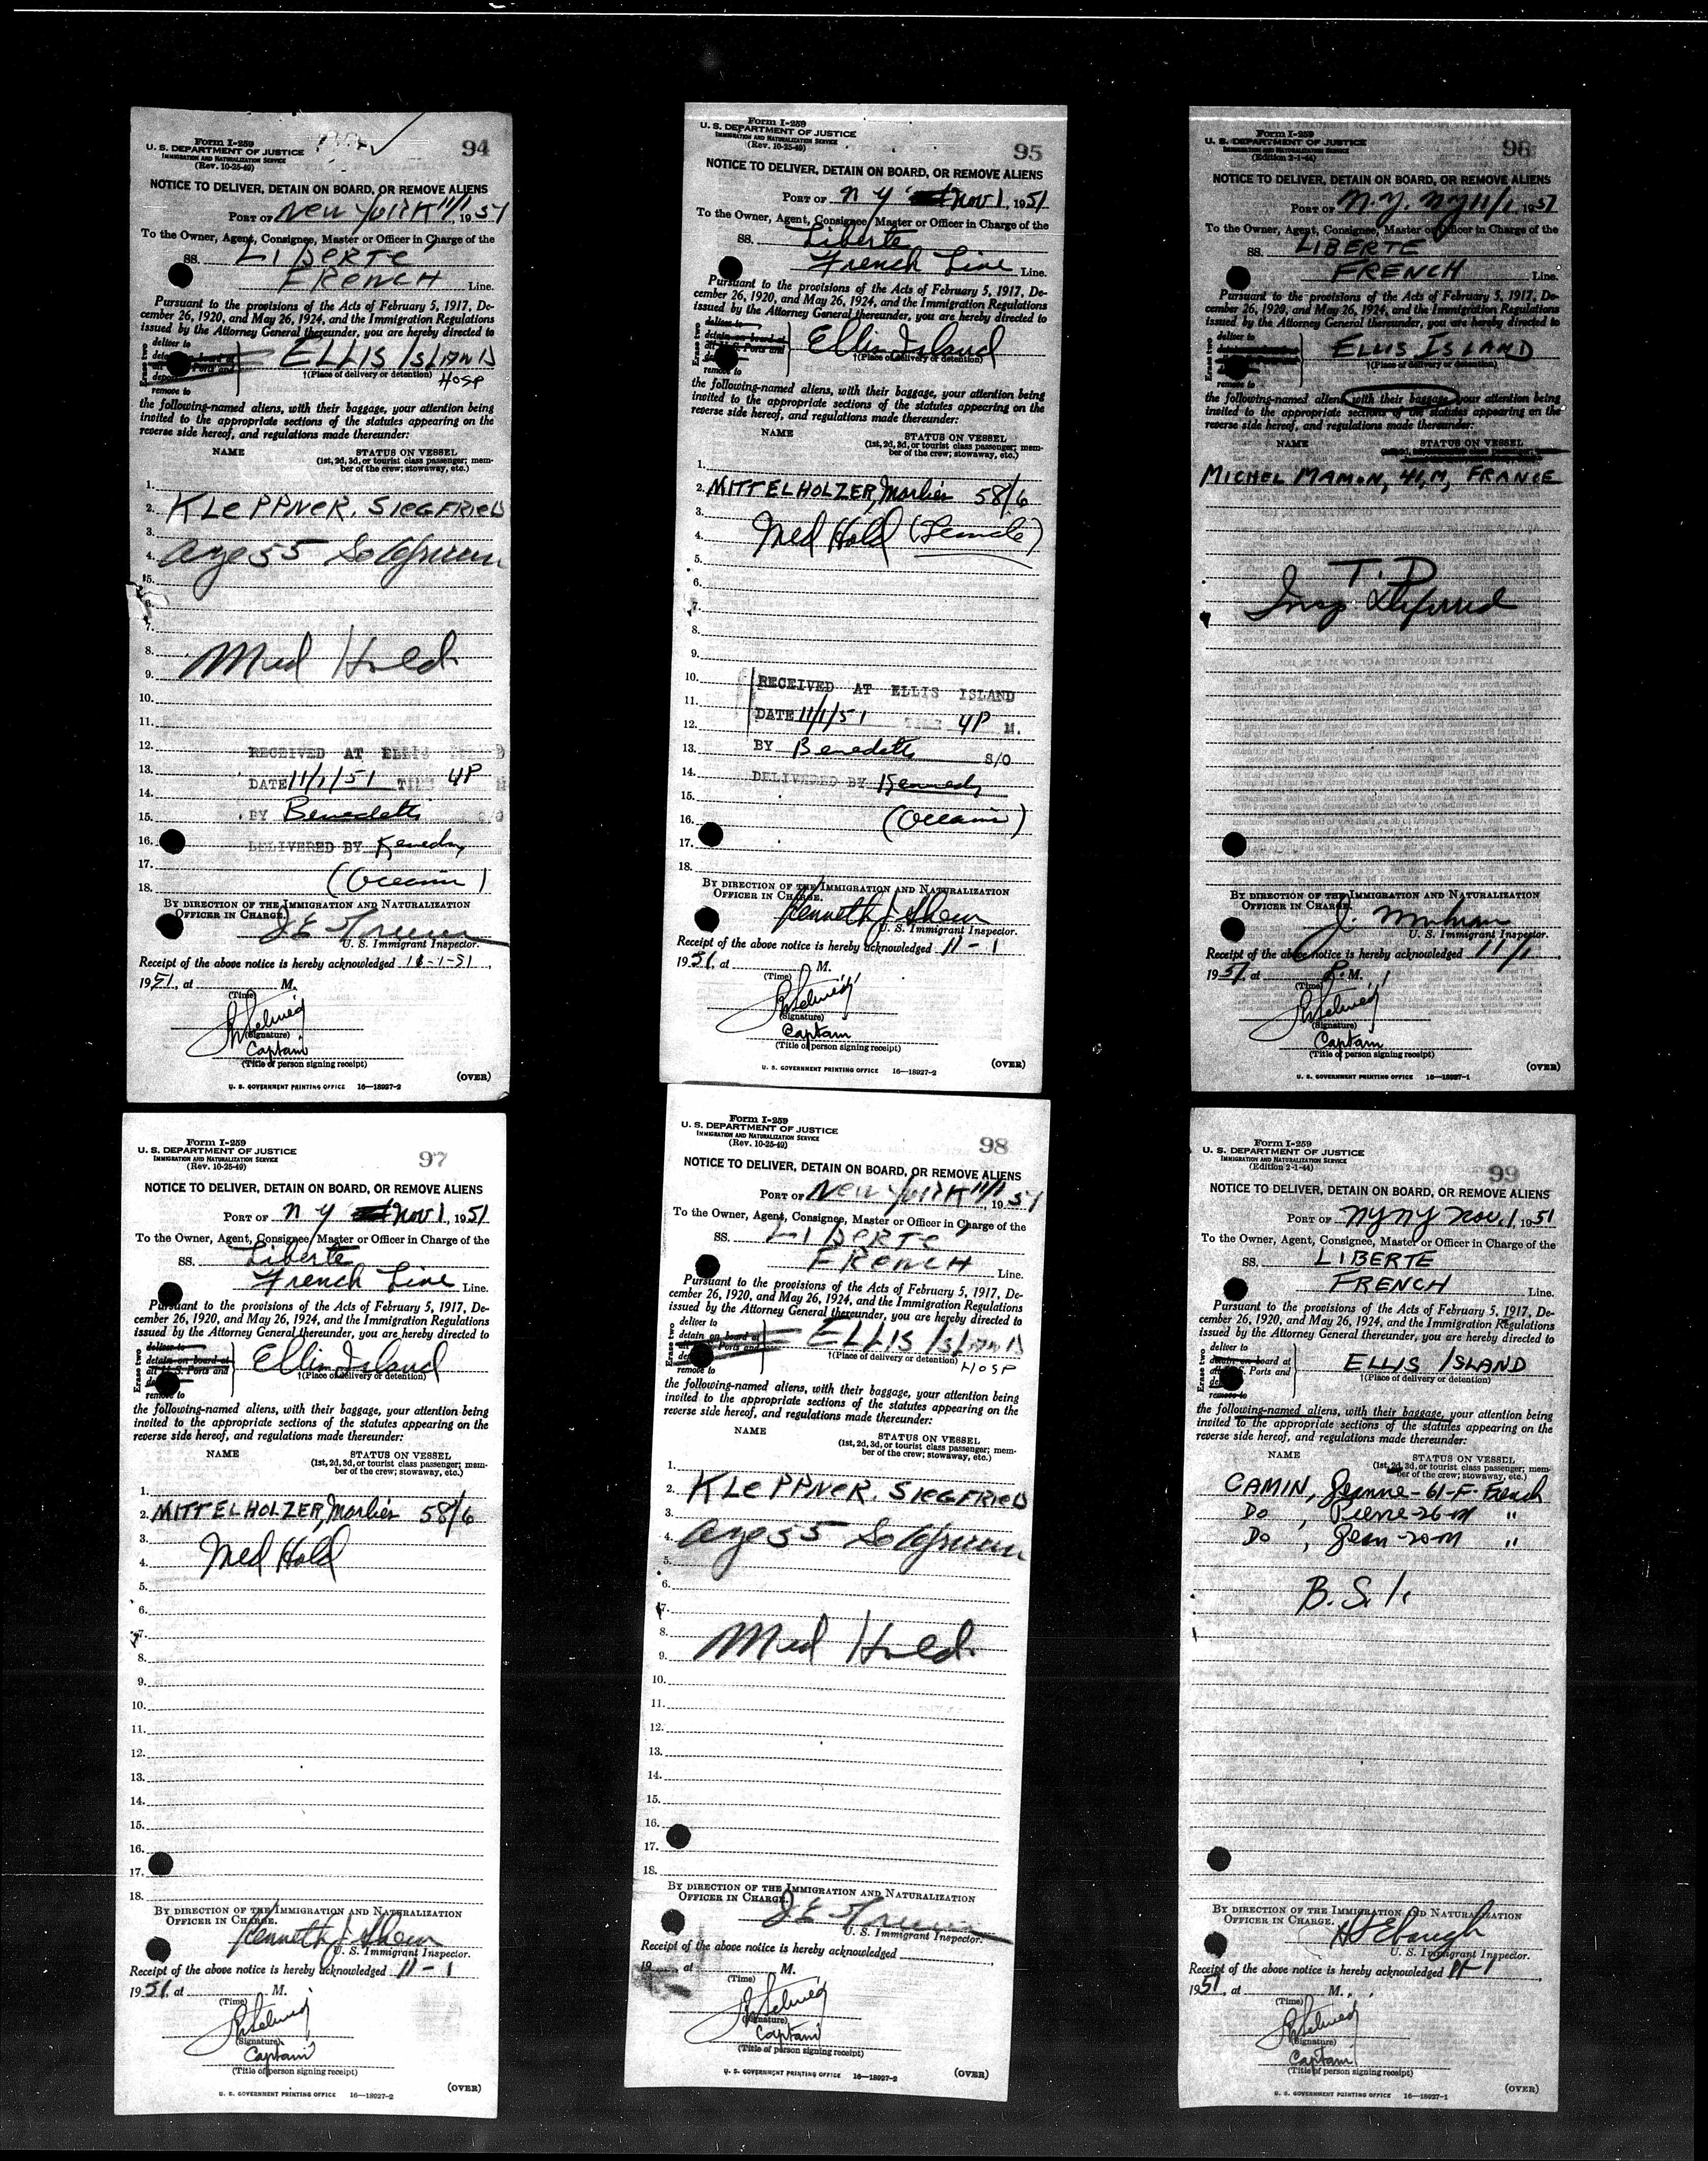 Form I-259
U. S. DEPARTMENT OF JUSTICE
IMMIGRATION AND NATURALIZATION SERVICE
(Rev. 10-25-49)
94
NOTICE TO DELIVER, DETAIN ON BOARD, OR REMOVE ALIENS
PORT OF New York 11/1, 1951
To the Owner, Agent, Consignee, Master or Officer in Charge of the
SS. LIBERTE
FRENCH Line.
Pursuant to the provisions of the Acts of February 5, 1917, De-
cember 26, 1920, and May 26, 1924, and the Immigration Regulations
issued by the Attorney General thereunder, you are hereby directed to
Erase two
deliver to
ELLIS ISLAND
†(Place of delivery or detention)
HOSP
remove to
the following-named aliens, with their baggage, your attention being
invited to the appropriate sections of the statutes appearing on the
reverse side hereof, and regulations made thereunder:
NAME STATUS ON VESSEL
(1st, 2d, 3d, or tourist class passenger; mem-
ber of the crew; stowaway, etc.)
1.
2. KLEPPNER, SIEGFRIED
3.
4. age 55
5.
6.
7.
8. Med Hold
9.
10.
11.
12. RECEIVED AT ELLIS
13. DATE 11/1/51 TIME 4P
14.
15. BY Benedetti S/O
16. DELIVERED BY Kenedy
17.
18. (Oceanic)
BY DIRECTION OF THE IMMIGRATION AND NATURALIZATION
OFFICER IN CHARGE.
U. S. Immigrant Inspector.
Receipt of the above notice is hereby acknowledged 11-1-51,
1951, at M.
(Time)
(Signature)
Captain
(Title of person signing receipt)
(OVER)
U. S. GOVERNMENT PRINTING OFFICE 16—18927-2
Form I-259
U. S. DEPARTMENT OF JUSTICE
IMMIGRATION AND NATURALIZATION SERVICE
(Rev. 10-25-49)
95
NOTICE TO DELIVER, DETAIN ON BOARD, OR REMOVE ALIENS
PORT OF N Y Nov 1, 1951
To the Owner, Agent, Consignee, Master or Officer in Charge of the
SS. Liberte
French Line Line.
Pursuant to the provisions of the Acts of February 5, 1917, De-
cember 26, 1920, and May 26, 1924, and the Immigration Regulations
issued by the Attorney General thereunder, you are hereby directed to
Erase two
deliver to
detain on board at
Ellis Island
†(Place of delivery or detention)
remove to
the following-named aliens, with their baggage, your attention being
invited to the appropriate sections of the statutes appearing on the
reverse side hereof, and regulations made thereunder:
NAME STATUS ON VESSEL
(1st, 2d, 3d, or tourist class passenger; mem-
ber of the crew; stowaway, etc.)
1.
2. MITTELHOLZER, Marlies 58/6
3.
4. Med Hold (Senile)
5.
6.
7.
8.
9.
10. RECEIVED AT ELLIS ISLAND
11. DATE 11/1/51 TIME 4P M.
12.
13. BY Benedetti S/O
14. DELIVERED BY Kennedy
15.
16. (Oceanic)
17.
18.
BY DIRECTION OF THE IMMIGRATION AND NATURALIZATION
OFFICER IN CHARGE.
Kenneth J Shew
U. S. Immigrant Inspector.
Receipt of the above notice is hereby acknowledged 11-1
1951, at M.
(Time)
(Signature)
Captain
(Title of person signing receipt)
(OVER)
U. S. GOVERNMENT PRINTING OFFICE 16—18927-2
Form I-259
U. S. DEPARTMENT OF JUSTICE
IMMIGRATION AND NATURALIZATION SERVICE
(Edition 2-1-44)
96
NOTICE TO DELIVER, DETAIN ON BOARD, OR REMOVE ALIENS
PORT OF N.Y. NY 11/1, 1951
To the Owner, Agent, Consignee, Master or Officer in Charge of the
SS. LIBERTE
FRENCH Line.
Pursuant to the provisions of the Acts of February 5, 1917, De-
cember 26, 1920, and May 26, 1924, and the Immigration Regulations
issued by the Attorney General thereunder, you are hereby directed to
Erase two
deliver to
ELLIS ISLAND
†(Place of delivery or detention)
remove to
the following-named aliens, with their baggage, your attention being
invited to the appropriate sections of the statutes appearing on the
reverse side hereof, and regulations made thereunder:
NAME STATUS ON VESSEL
MICHEL MAMON, 41, M, FRANCE
T. D
Insp Deferred
BY DIRECTION OF THE IMMIGRATION AND NATURALIZATION
OFFICER IN CHARGE.
U. S. Immigrant Inspector.
Receipt of the above notice is hereby acknowledged 11/1,
1951, at P. M.
(Time)
(Signature)
Captain
(Title of person signing receipt)
(OVER)
U. S. GOVERNMENT PRINTING OFFICE 16—18927-1
Form I-259
U. S. DEPARTMENT OF JUSTICE
IMMIGRATION AND NATURALIZATION SERVICE
(Rev. 10-25-49)
97
NOTICE TO DELIVER, DETAIN ON BOARD, OR REMOVE ALIENS
PORT OF N Y Nov 1, 1951
To the Owner, Agent, Consignee, Master or Officer in Charge of the
SS. Liberte
French Line Line.
Pursuant to the provisions of the Acts of February 5, 1917, De-
cember 26, 1920, and May 26, 1924, and the Immigration Regulations
issued by the Attorney General thereunder, you are hereby directed to
Erase two
deliver to
detain on board at
Ellis Island
†(Place of delivery or detention)
remove to
the following-named aliens, with their baggage, your attention being
invited to the appropriate sections of the statutes appearing on the
reverse side hereof, and regulations made thereunder:
NAME STATUS ON VESSEL
(1st, 2d, 3d, or tourist class passenger; mem-
ber of the crew; stowaway, etc.)
1.
2. MITTELHOLZER, Marlies 58/6
3.
4. Med Hold
5.
6.
7.
8.
9.
10.
11.
12.
13.
14.
15.
16.
17.
18.
BY DIRECTION OF THE IMMIGRATION AND NATURALIZATION
OFFICER IN CHARGE.
Kenneth J Shew
U. S. Immigrant Inspector.
Receipt of the above notice is hereby acknowledged 11-1
1951, at M.
(Time)
(Signature)
Captain
(Title of person signing receipt)
(OVER)
U. S. GOVERNMENT PRINTING OFFICE 16—18927-2
Form I-259
U. S. DEPARTMENT OF JUSTICE
IMMIGRATION AND NATURALIZATION SERVICE
(Rev. 10-25-49)
98
NOTICE TO DELIVER, DETAIN ON BOARD, OR REMOVE ALIENS
PORT OF New York 11/1, 1951
To the Owner, Agent, Consignee, Master or Officer in Charge of the
SS. LIBERTE
FRENCH Line.
Pursuant to the provisions of the Acts of February 5, 1917, De-
cember 26, 1920, and May 26, 1924, and the Immigration Regulations
issued by the Attorney General thereunder, you are hereby directed to
Erase two
deliver to
detain on board at
ELLIS ISLAND
†(Place of delivery or detention)
HOSP
remove to
the following-named aliens, with their baggage, your attention being
invited to the appropriate sections of the statutes appearing on the
reverse side hereof, and regulations made thereunder:
NAME STATUS ON VESSEL
(1st, 2d, 3d, or tourist class passenger; mem-
ber of the crew; stowaway, etc.)
1.
2. KLEPPNER, SIEGFRIED
3.
4. age 55
5.
6.
7.
8. Med Hold
9.
10.
11.
12.
13.
14.
15.
16.
17.
18.
BY DIRECTION OF THE IMMIGRATION AND NATURALIZATION
OFFICER IN CHARGE.
U. S. Immigrant Inspector.
Receipt of the above notice is hereby acknowledged
19 , at M.
(Time)
(Signature)
Captain
(Title of person signing receipt)
(OVER)
U. S. GOVERNMENT PRINTING OFFICE 16—18927-2
Form I-259
U. S. DEPARTMENT OF JUSTICE
IMMIGRATION AND NATURALIZATION SERVICE
(Edition 2-1-44)
99
NOTICE TO DELIVER, DETAIN ON BOARD, OR REMOVE ALIENS
PORT OF NY NY Nov. 1, 1951
To the Owner, Agent, Consignee, Master or Officer in Charge of the
SS. LIBERTE
FRENCH Line.
Pursuant to the provisions of the Acts of February 5, 1917, De-
cember 26, 1920, and May 26, 1924, and the Immigration Regulations
issued by the Attorney General thereunder, you are hereby directed to
Erase two
deliver to
detain on board at
Ports and
ELLIS ISLAND
†(Place of delivery or detention)
remove to
the following-named aliens, with their baggage, your attention being
invited to the appropriate sections of the statutes appearing on the
reverse side hereof, and regulations made thereunder:
NAME STATUS ON VESSEL
(1st, 2d, 3d, or tourist class passenger; mem-
ber of the crew; stowaway, etc.)
CAMIN, Jeanne-61-F-French
Do , Pierre-26-M "
Do , Jean-20-M "
B.S.I.
BY DIRECTION OF THE IMMIGRATION AND NATURALIZATION
OFFICER IN CHARGE.
H J Ebaugh
U. S. Immigrant Inspector.
Receipt of the above notice is hereby acknowledged 11-1,
1951, at M.
(Time)
(Signature)
Captain
(Title of person signing receipt)
(OVER)
U. S. GOVERNMENT PRINTING OFFICE 16—18927-1